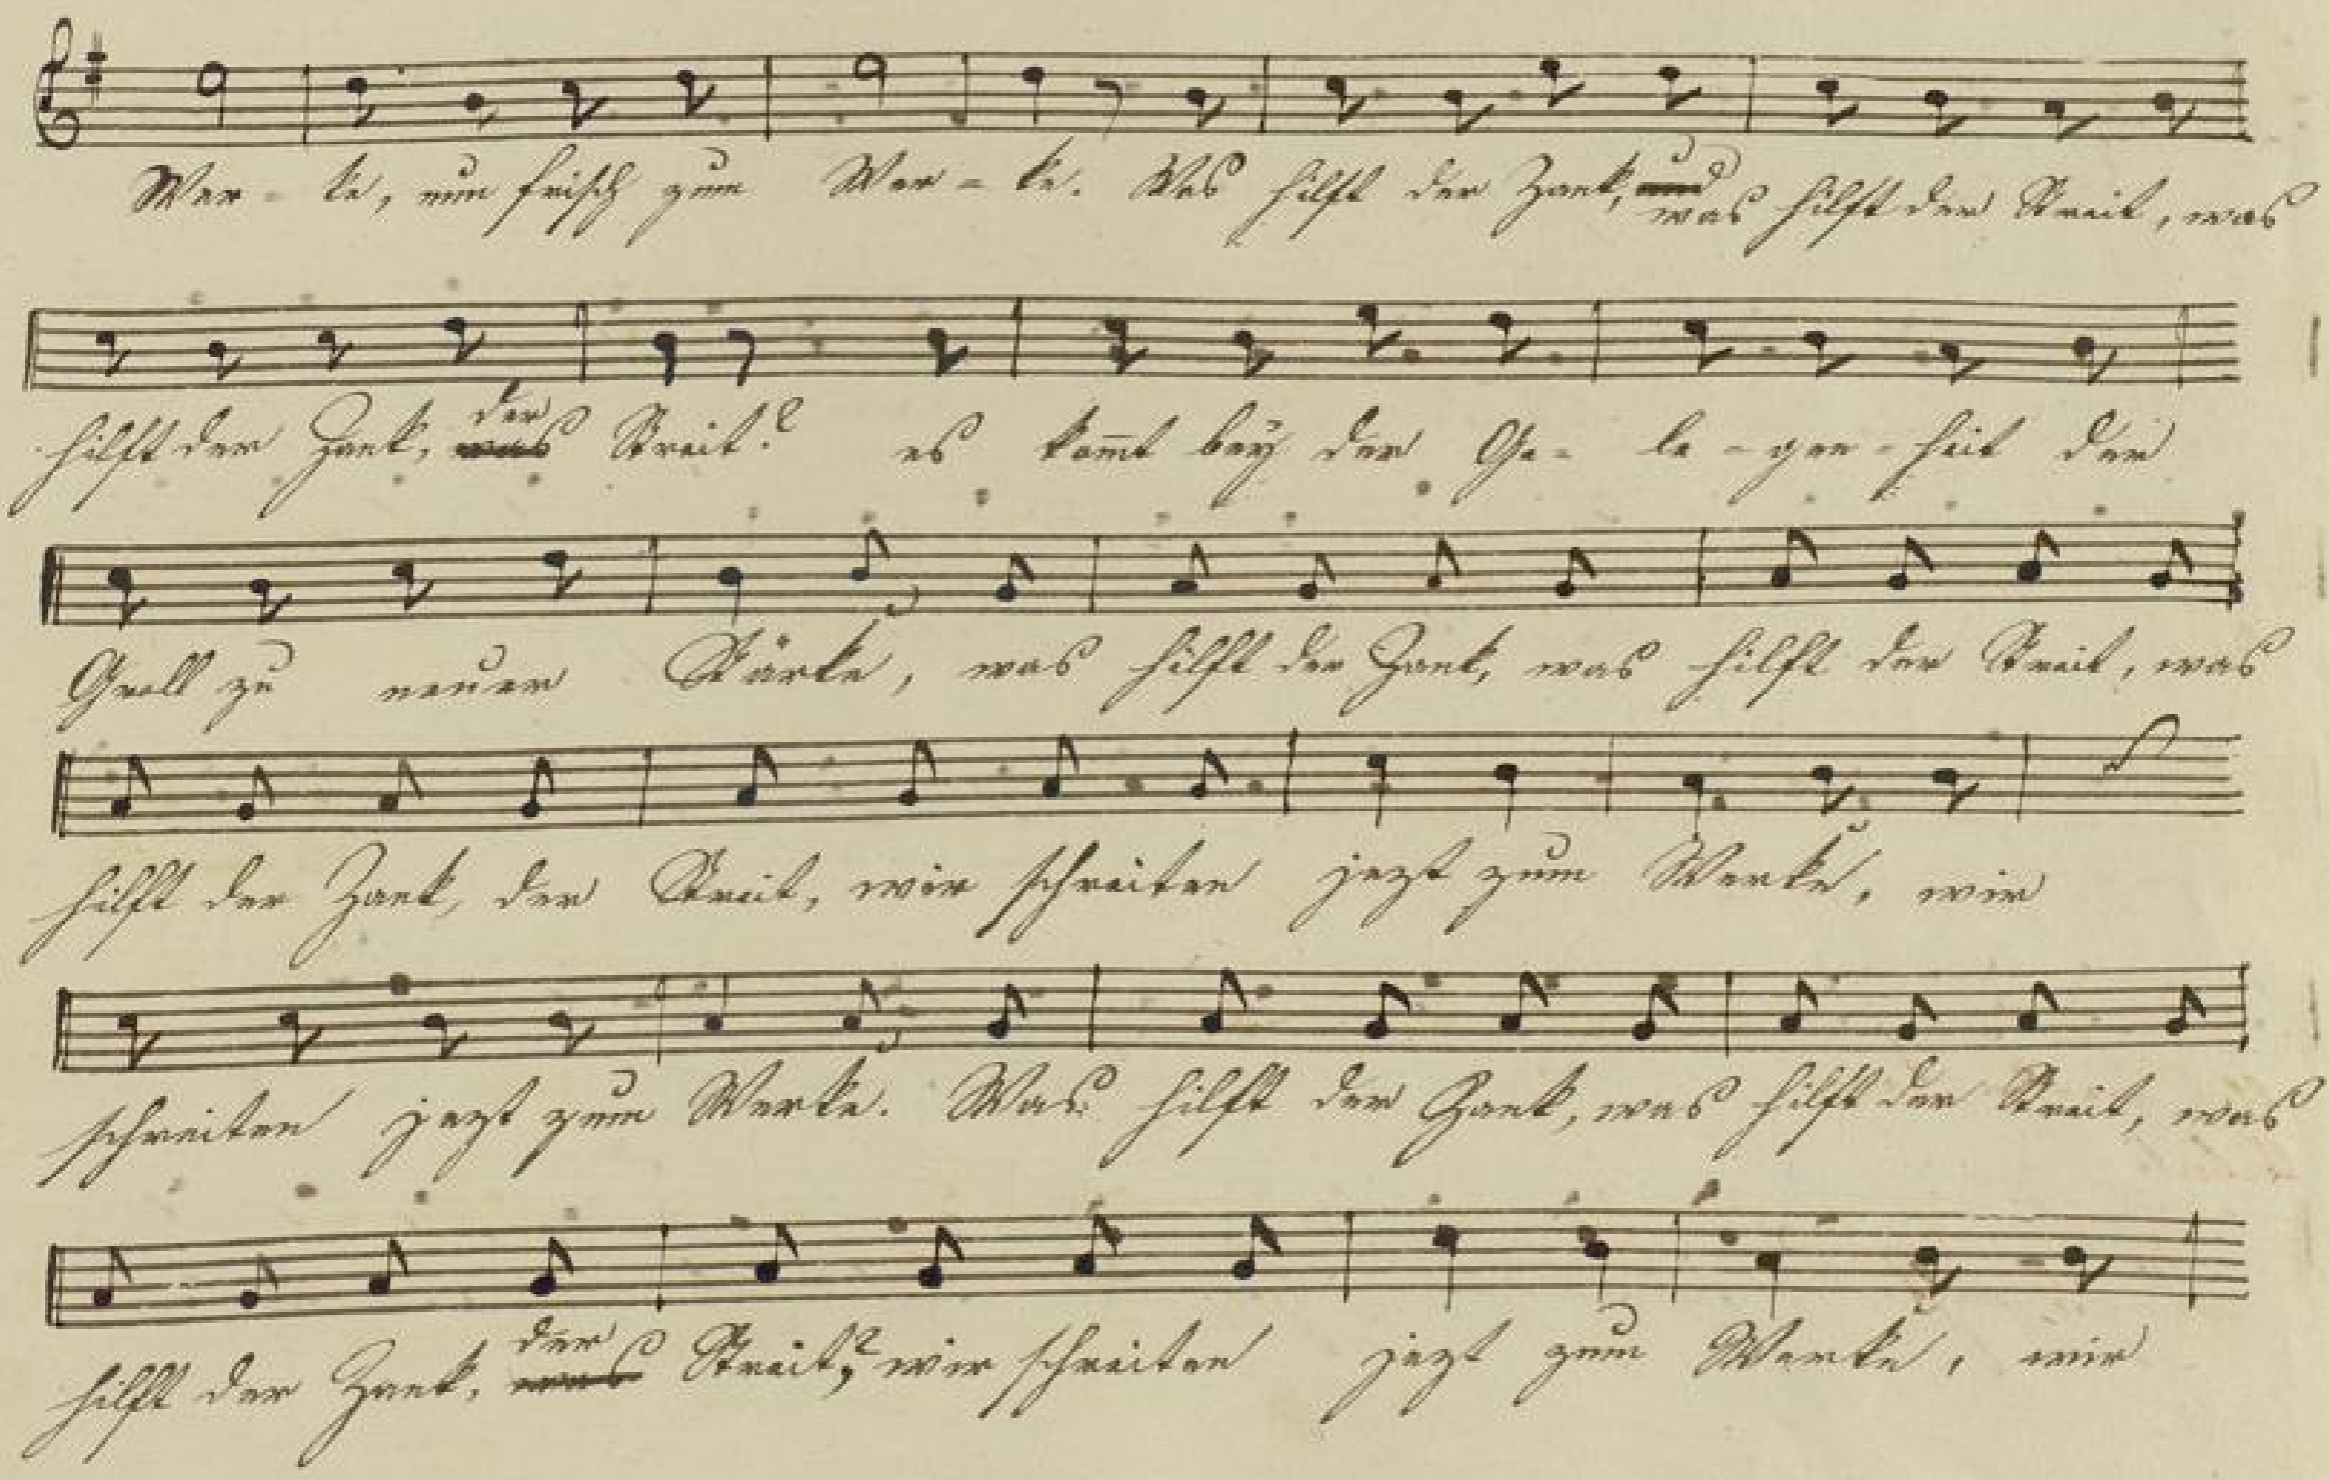 Wer - ke, nun frisch zum Wer - ke. Was hilft der Zank, und was hilft der Streit, was
hilft der Zank, was der Streit? es kom̅t bey der Ge - le - gen - heit der
Groll zu neuer Stärke, was hilft der Zank, was hilft der Streit, was
hilft der Zank, der Streit, wir schreiten jezt zum Werke, wir
schreiten jezt zum Werke. Was hilft der Zank, was hilft der Streit, was
hilft der Zank, was der Streit? wir schreiten jezt zum Werke, wir